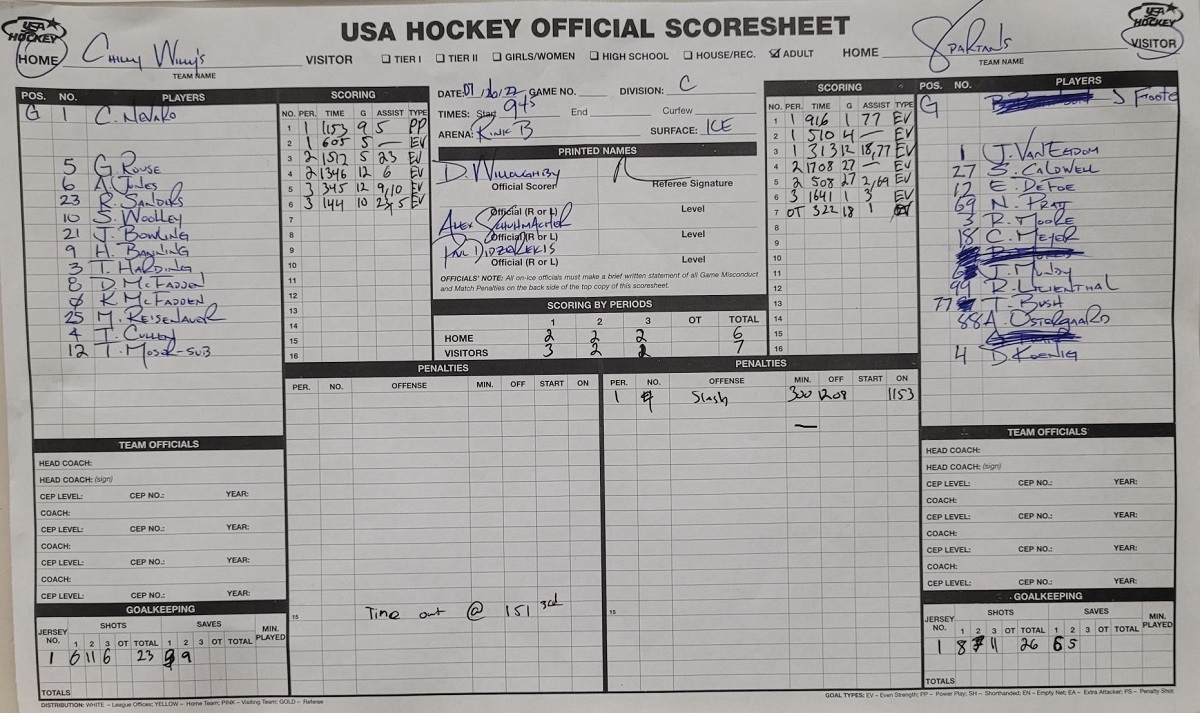 USA HOCKEY OFFICIAL SCORESHEET
USA HOCKEY
HOME
Chilly Willy's
TEAM NAME
VISITOR
TIER I TIER II GIRLS/WOMEN HIGH SCHOOL HOUSE/REC. ADULT
HOME
Spartans
TEAM NAME
USA HOCKEY
VISITOR
POS. NO. PLAYERS
G 1 C. Nevaro
5 G. Rouse
6 A. Jones
23 R. Sanders
10 S. Woolley
21 J. Bowling
9 H. Banning
3 T. Harding
8 D. McFadden
K. McFadden
25 M. Reisenauer
4 T. Cullen
12 T. Moser-sub
SCORING
NO. PER. TIME G ASSIST TYPE
1 1 1153 9 5 PP
2 1 605 5 — EV
3 2 1512 5 23 EV
4 2 1346 12 6 EV
5 3 345 12 9,10 EV
6 3 144 10 23,5 EV
7
8
9
10
11
12
13
14
15
16
DATE: GAME NO. DIVISION: C
TIMES: Start 945 End Curfew
ARENA: Rink B SURFACE: ICE
PRINTED NAMES
D. Willoughby
Official Scorer Referee Signature
Official (R or L) Level
Alex Schuhmacher
Official (R or L) Level
Official (R or L) Level
OFFICIALS' NOTE: All on-ice officials must make a brief written statement of all Game Misconduct
and Match Penalties on the back side of the top copy of this scoresheet.
SCORING BY PERIODS
1 2 3 OT TOTAL
HOME 2 2 2 6
VISITORS 3 2 2 7
SCORING
NO. PER. TIME G ASSIST TYPE
1 1 916 1 77 EV
2 1 510 4 — EV
3 1 313 12 18,77 EV
4 2 1708 27 — EV
5 2 508 27 2,69 EV
6 3 1641 1 3 EV
7 OT 322 18 1
8
9
10
11
12
13
14
15
16
POS. NO. PLAYERS
G J Foote
1 J. VanEgdom
27 S. Caldwell
12 E. DeFoe
69 N. Pratt
3 R. Moore
18 C. Meyer
J. Mundy
99 R. Lilienthal
77 T. Bush
88 A. Ostergaard
4 D. Koenig
PENALTIES
PER. NO. OFFENSE MIN. OFF START ON
15 Time out @ 151 3rd
PENALTIES
PER. NO. OFFENSE MIN. OFF START ON
1 Slash 300 1208 1153
—
15
TEAM OFFICIALS
HEAD COACH:
HEAD COACH: (sign)
CEP LEVEL: CEP NO.: YEAR:
COACH:
CEP LEVEL: CEP NO.: YEAR:
COACH:
CEP LEVEL: CEP NO.: YEAR:
COACH:
CEP LEVEL: CEP NO.: YEAR:
GOALKEEPING
SHOTS SAVES
JERSEY NO. 1 2 3 OT TOTAL 1 2 3 OT TOTAL MIN. PLAYED
1 6 11 6 23 9 9
TOTALS
TEAM OFFICIALS
HEAD COACH:
HEAD COACH: (sign)
CEP LEVEL: CEP NO.: YEAR:
COACH:
CEP LEVEL: CEP NO.: YEAR:
COACH:
CEP LEVEL: CEP NO.: YEAR:
COACH:
CEP LEVEL: CEP NO.: YEAR:
GOALKEEPING
SHOTS SAVES
JERSEY NO. 1 2 3 OT TOTAL 1 2 3 OT TOTAL MIN. PLAYED
1 8 7 11 26 6 5
TOTALS
DISTRIBUTION: WHITE – League Offices; YELLOW – Home Team; PINK – Visiting Team; GOLD – Referee
GOAL TYPES: EV – Even Strength; PP – Power Play; SH – Shorthanded; EN – Empty Net; EA – Extra Attacker; PS – Penalty Shot